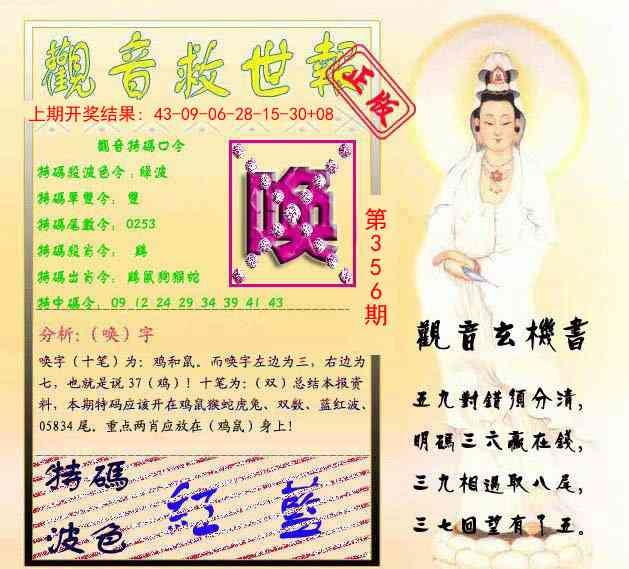 觀音救世報
正版
上期开奖结果：43-09-06-28-15-30+08
觀音特碼口令
特碼殺波色令：綠波
特碼單雙令：雙
特碼尾數令：0253
特碼殺肖令：鷄
特碼出肖令：鷄鼠狗猴蛇
特中碼令：09 12 24 29 34 39 41 43
喚
第356期
分析：（唤）字
唤字（十笔）为：鸡和鼠。而唤字左边为三，右边为
七，也就是说37（鸡）！十笔为：（双）总结本报资
料，本期特码应该开在鸡鼠猴蛇虎兔、双数、蓝红波、
05834尾。重点两肖应放在（鸡鼠）身上！
特碼
波色
紅 藍
觀音玄機書
五九對錯須分清，
明碼三六贏在錢，
三九相遇取八尾，
三七回望有了五。